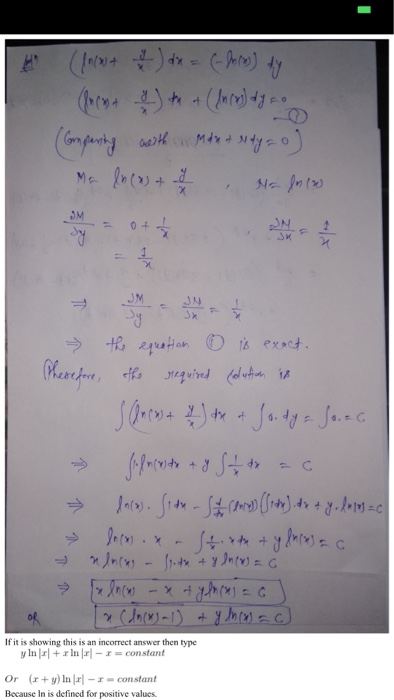 (ln(x) + y/x) dx = (-ln(x)) dy
(ln(x) + y/x) dx + (ln(x)) dy = 0 —①
(Comparing with Mdx + Ndy = 0)
M = ln(x) + y/x , N = ln(x)
∂M/∂y = 0 + 1/x , ∂N/∂x = 1/x
= 1/x
⇒ ∂M/∂y = ∂N/∂x = 1/x
⇒ the equation ① is exact.
Therefore, the required solution is
∫(ln(x) + y/x) dx + ∫0. dy = ∫0. = C
⇒ ∫1. ln(x) dx + y ∫ 1/x dx = C
⇒ ln(x). ∫1 dx - ∫ d/dx (ln(x)) (∫1 dx). dx + y. ln(x) = C
⇒ ln(x) . x - ∫ 1/x . x dx + y ln(x) = C
⇒ x ln(x) - ∫1. dx + y ln(x) = C
⇒ x ln(x) - x + y ln(x) = C
OR x (ln(x) - 1) + y ln(x) = C
If it is showing this is an incorrect answer then type
y ln |x| + x ln |x| − x = constant
Or (x + y) ln |x| − x = constant
Because ln is defined for positive values.